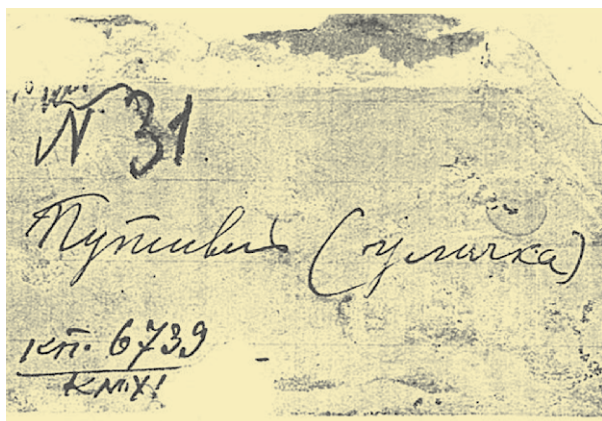 N 31
Путивль (улички)
кп. 6739
КМХІ